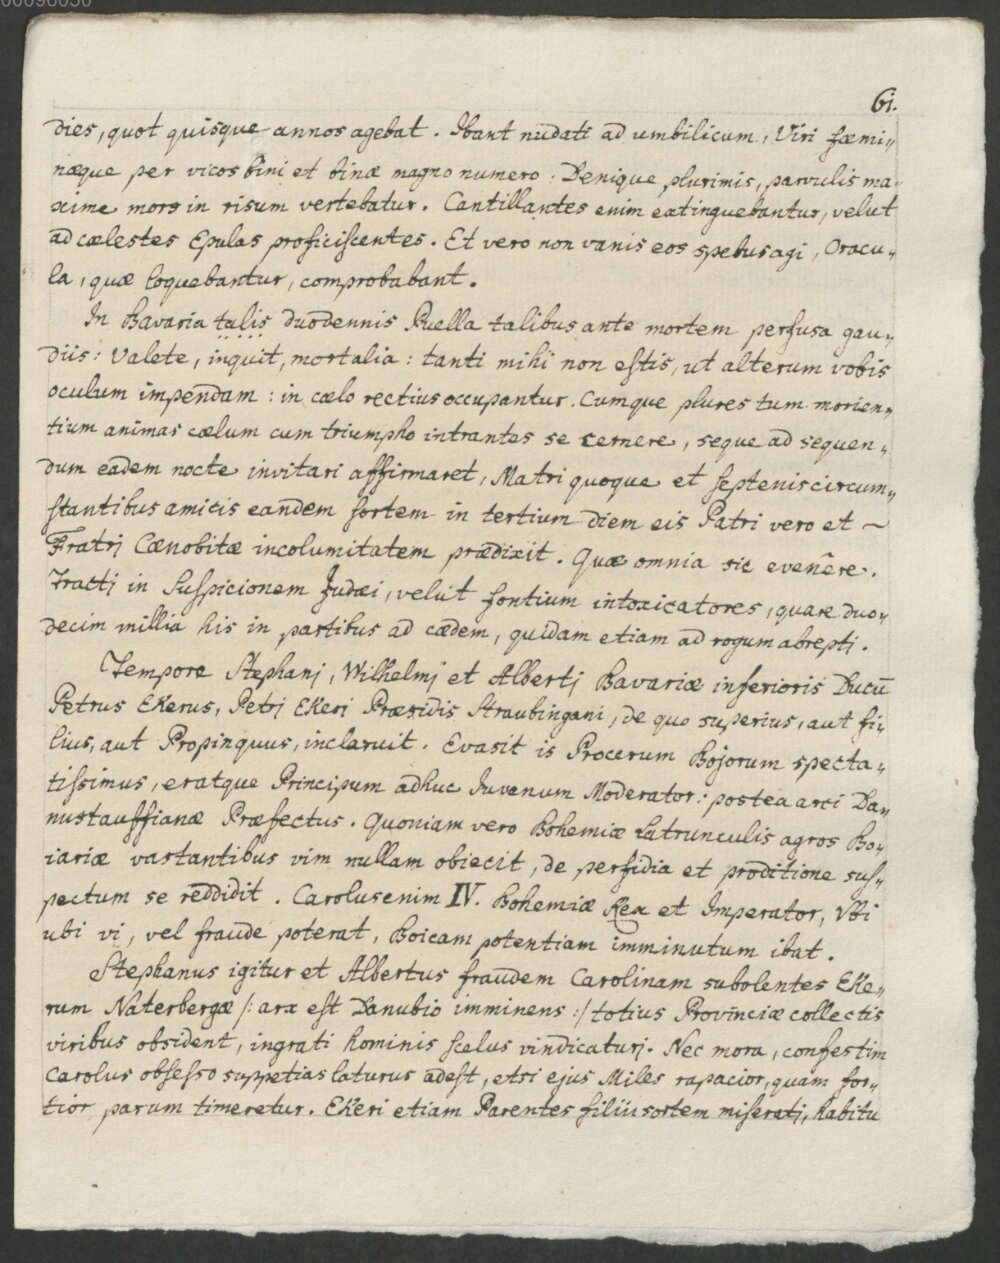 00096050
61.
dies, quot quisque annos agebat. Ibant nudati ad umbilicum, Viri fœmi,,
næque per vicos bini et binæ magno numero. Denique plurimis, parvulis ma,,
xime mors in risum vertebatur. Cantillantes enim extinguebantur, velut
ad cælestes Epulas proficiscentes. Et vero non vanis eos spebus agi, Oracu,,
la, quæ loquebantur, comprobabant.
In Bavaria talis duodennis Puella talibus ante mortem perfusa gau,,
diis: Valete, inquit, mortalia: tanti mihi non estis, ut alterum vobis
oculum impendam: in cælo rectius occupantur. Cumque plures tum morien,,
tium animas cælum cum triumpho intrantes se cernere, seque ad sequen,,
dum eadem nocte invitari affirmaret, Matri quoque et septenis circum,,
stantibus amicis eandem sortem in tertium diem eis Patri vero et ~
Fratrj Cœnobitæ incolumitatem prædixit. Quæ omnia sic evenêre.
Tractj in Suspicionem Judæi, velut fontium intoxicatores, quare duo,,
decim millia his in partibus ad cædem, quidam etiam ad rogum abreptj.
Tempore Stephanj, Wilhelmj et Albertj Bavariæ inferioris Ducū
Petrus Ekerus, Petrj Ekeri Præsidis Straubingani, de quo superius, aut fi,,
lius, aut Propinquus, inclaruit. Evasit is Procerum Bojorum specta,,
tissimus, eratque Principum adhuc Juvenum Moderator: postea arci Do,,
nustauffianæ Præfectus. Quoniam vero Bohemiæ Latrunculis agros Bo,,
iariæ vastantibus vim nullam obiecit, de perfidia et proditione sus,,
pectum se reddidit. Carolus enim IV. Bohemiæ Rex et Imperator, Vbi
ubi vi, vel fraude poterat, Boicam potentiam imminutum ibat.
Stephanus igitur et Albertus fraudem Carolinam subolentes Eke,,
rum Naterbergæ /: arx est Danubio imminens :/ totius Provinciæ collectis
viribus obsident, ingrati hominis scelus vindicaturj. Nec mora, confestim
Carolus obsesso suppetias laturus adest, etsi ejus Miles rapacior, quam for,,
tior parum timeretur. Ekeri etiam Parentes filii sortem miseratj, habitu